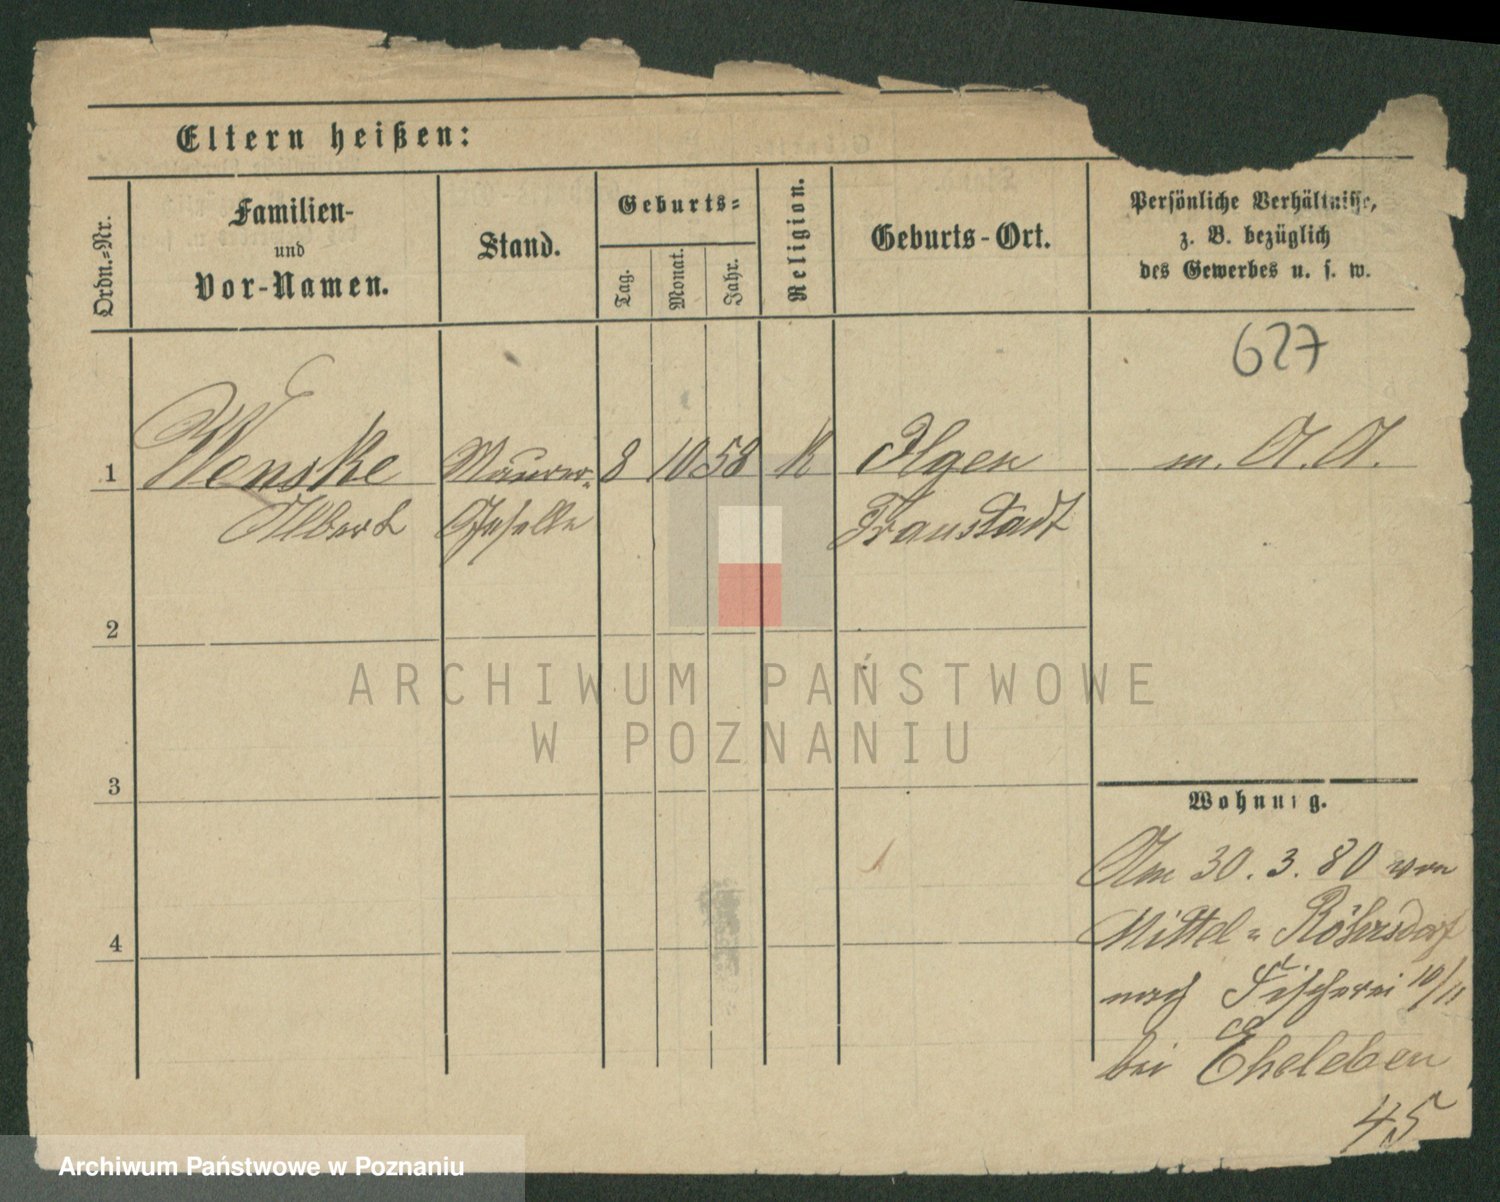 Eltern heißen:
Ordn.-Nr.
Familien-
und
Vor-Namen.
Stand.
Geburts-
Tag.
Monat.
Jahr.
Religion.
Geburts-Ort.
Persönliche Verhältnisse,
z. B. bezüglich
des Gewerbes u. s. w.
627
1 Wenske Maurer- 8 10 58 K Ilgen m. A. A.
Albert Geselle Fraustadt
2
3
4
Wohnung.
Am 30. 3. 80 von
Mittel-Röhrsdorf
nach Fischerei 10/11
bei Eheleben
45
ARCHIWUM PAŃSTWOWE
W POZNANIU
Archiwum Państwowe w Poznaniu